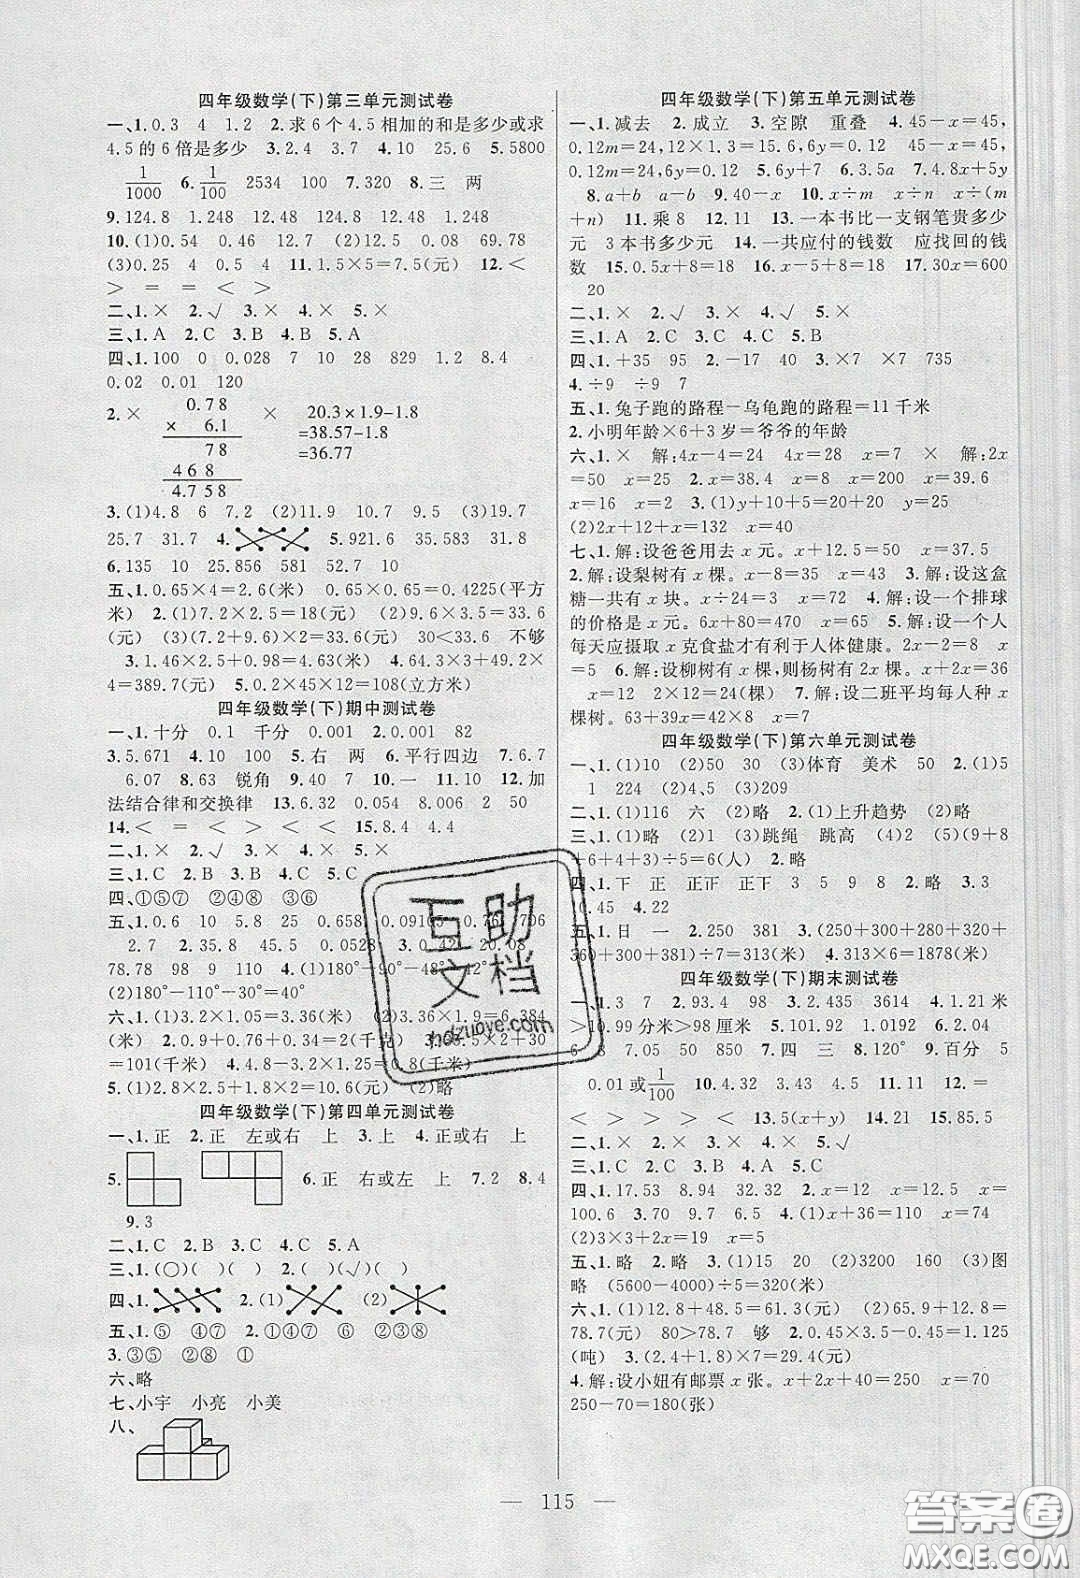 四年级数学(下)第三单元测试卷
一、1.0.3 4 1.2 2.求6个4.5相加的和是多少或求
4.5的6倍是多少 3.2.4 3.7 4.10 25.6 5.5800
1/1000 6.1/100 2534 100 7.320 8.三 两
9.124.8 1.248 12.48 124.8 12.48 1.248
10.(1)0.54 0.46 12.7 (2)12.4 0.08 69.78
(3)0.25 4 0.5 4 11.1.5×5=7.5(元) 12.<
> = = < >
二、1.× 2.√ 3.× 4.× 5.×
三、1.A 2.C 3.B 4.B 5.A
四、1.100 0 0.028 7 10 28 829 1.2 8.4
0.02 0.01 120
2.× 0.78 × 20.3×1.9-1.8
× 6.1 =38.57-1.8
78 =36.77
468
4.758
3.(1)4.8 6 7.2 (2)11.9 10.7 (3)19.7
25.7 31.7 4. 5.921.6 315.38 31.8
6.135 10 25.856 581 52.7 6
五、1.0.65×4=2.6(米) 0.65×0.65=0.4225(平方
米) 2.(1)7.2×2.5=18(元) (2)9.6×3.5=33.6
(元) (3)(7.2+9.6)×2=33.6(元) 30<33.6 不够
3.1.46×2.5+0.98=4.63(米) 4.64.95×1.5×
4=389.7(元) 5.0.2×45×12=108(立方米)
四年级数学(下)期中测试卷
一、1.十分 0.1 千分 0.001 2.0.001 82
3.5.671 4.10 100 5.右 两 6.平行四边 7.6.7
6.07 8.63 锐角 9.40 7 10.一 11.10 12.加
法结合律和交换律 13.6.32 0.054 8.006 2 50
14.< = < > < < 15.8.4 4.4
二、1.× 2.√ 3.× 4.× 5.×
三、1.C 2.B 3.B 4.B 5.C
四、①⑤⑦ ②④⑧ ③⑥
五、1.0.6 10 5.8 25 0.658
2.7 2.38.35 45.5 0.0528 20.08
78.78 98 9 110
(2)180°-110°-30°=40°
六、1.(1)3.2×1.05=3.36(米)
(米) 2.0.9+0.76+0.34=2(千克)
=101(千米) 4.
5.(1)2.8×2.5+1.2×3=10.6(元) (2)略
四年级数学(下)第四单元测试卷
一、1.正 2.正 左或右 上 3.上 4.正或右 上
5. 6.正 右或左 上 7.2 8.4
9.3
二、1.C 2.B 3.C 4.C 5.A
三、1.(○)( )( ) 2.( )(√)( )
四、1. 2.(1) (2)
五、1.⑤ ④⑦ 2.①④⑦ ⑥ ②③⑧
3.③⑤ ②⑧ ①
六、略
七、小宇 小亮 小美
八、
四年级数学(下)第五单元测试卷
一、1.减去 2.成立 3.空隙 重叠 4.45-x=45,
0.12m=24,12×1.3=15.6,12x=62 45-x=45,
0.12m=24,6x=12 5.6+7 6.3.5a 7.4.8x+5y
8.a+b a-b 9.40-x 10.x÷m x÷n x÷(m
+n) 11.乘8 12.11 13.一本书比一支钢笔贵多少
元 3本书多少元 14.一共应付的钱数 应找回的钱
数 15.0.5x+8=18 16.x-5+8=18 17.30x=600
20
二、1.× 2.√ 3.× 4.√ 5.×
三、1.A 2.C 3.B 4.B 5.C
四、1.+35 95 2.-17 40 3.×7 ×7 735
4.÷9 ÷9 7
五、1.兔子跑的路程-乌龟跑的路程=11千米
2.小明年龄×6+3岁=爷爷的年龄
六、1.× 解:4x-4=24 4x=28 x=7 × 解:2x
=50 x=25 2.x=38.4 x=8 x=30 x=39.6
x=16 x=2 3.(1)y+10+5=20 y=5
(2)2x+12+x=132 x=40
七、1.解:设爸爸用去x元。x+12.5=50 x=37.5
2.解:设梨树有x棵。x-8=35 x=43 3.解:设这盒
糖一共有x块。x÷24=3 x=72 4.解:设一个排球
的价格是x元。6x+80=470 x=65 5.解:设一个人
每天应摄取x克食盐才有利于人体健康。2x-2=8 x
=5 6.解:设柳树有x棵,则杨树有2x棵。x+2x=36
x=12 2x=24(棵) 7.解:设二班平均每人种x
棵树。63+39x=42×8 x=7
四年级数学(下)第六单元测试卷
一、1.(1)10 (2)50 30 (3)体育 美术 50 2.(1)5
1 224 (2)4、5 (3)209
二、1.(1)116 六 (2)略 2.(1)上升趋势 (2)略
三、1.(1)略 (2)1 (3)跳绳 跳高 (4)2 (5)(9+8
+6+4+3)÷5=6(人) 2.略
四、1.下 正 正正 正下 3 5 9 8 2.略 3.3
10.45 4.22
五、1.日 一 2.250 381 3.(250+300+250+320
+360+330+381)÷7=313(米) 4.313×6=1878(米)
四年级数学(下)期末测试卷
一、1.3 7 2.93.4 98 3.2.045 3614 4.1.21米
>10.99分米>98厘米 5.101.92 1.0192 6.2.04
6 3 7.05 50 850 7.四 三 8.120° 9.百分 5
0.01或1/100 10.4.32 3.43 4.5 11.11 12.=
< > > > < 13.5(x+y) 14.2 15.85.5
二、1.× 2.× 3.× 4.× 5.√
三、1.C 2.B 3.B 4.A 5.C
四、1.17.53 8.94 32.32 2.x=12 x=12.5 x=
100.6 3.70 9.7 6.5 4.(1)x+36=110 x=74
(2)3×3+2x=19 x=5
五、1.略 2.略 3.(1)15 20 (2)3200 160 (3)图
略 (5600-4000)÷5=320(米)
六、1.(1)12.8+48.5=61.3(元) (2)65.9+12.8=
78.7(元) 80>78.7 够 2.0.45×2.5=1.125
(吨) 3.(2.4+1.8)×7=29.4(元)
4.解:设小妞有邮票x张。x+2x+40=250 x=70
250-70=180(张)
115
互助
文档
hdzuoye.com
答案圈
MXQE.COM